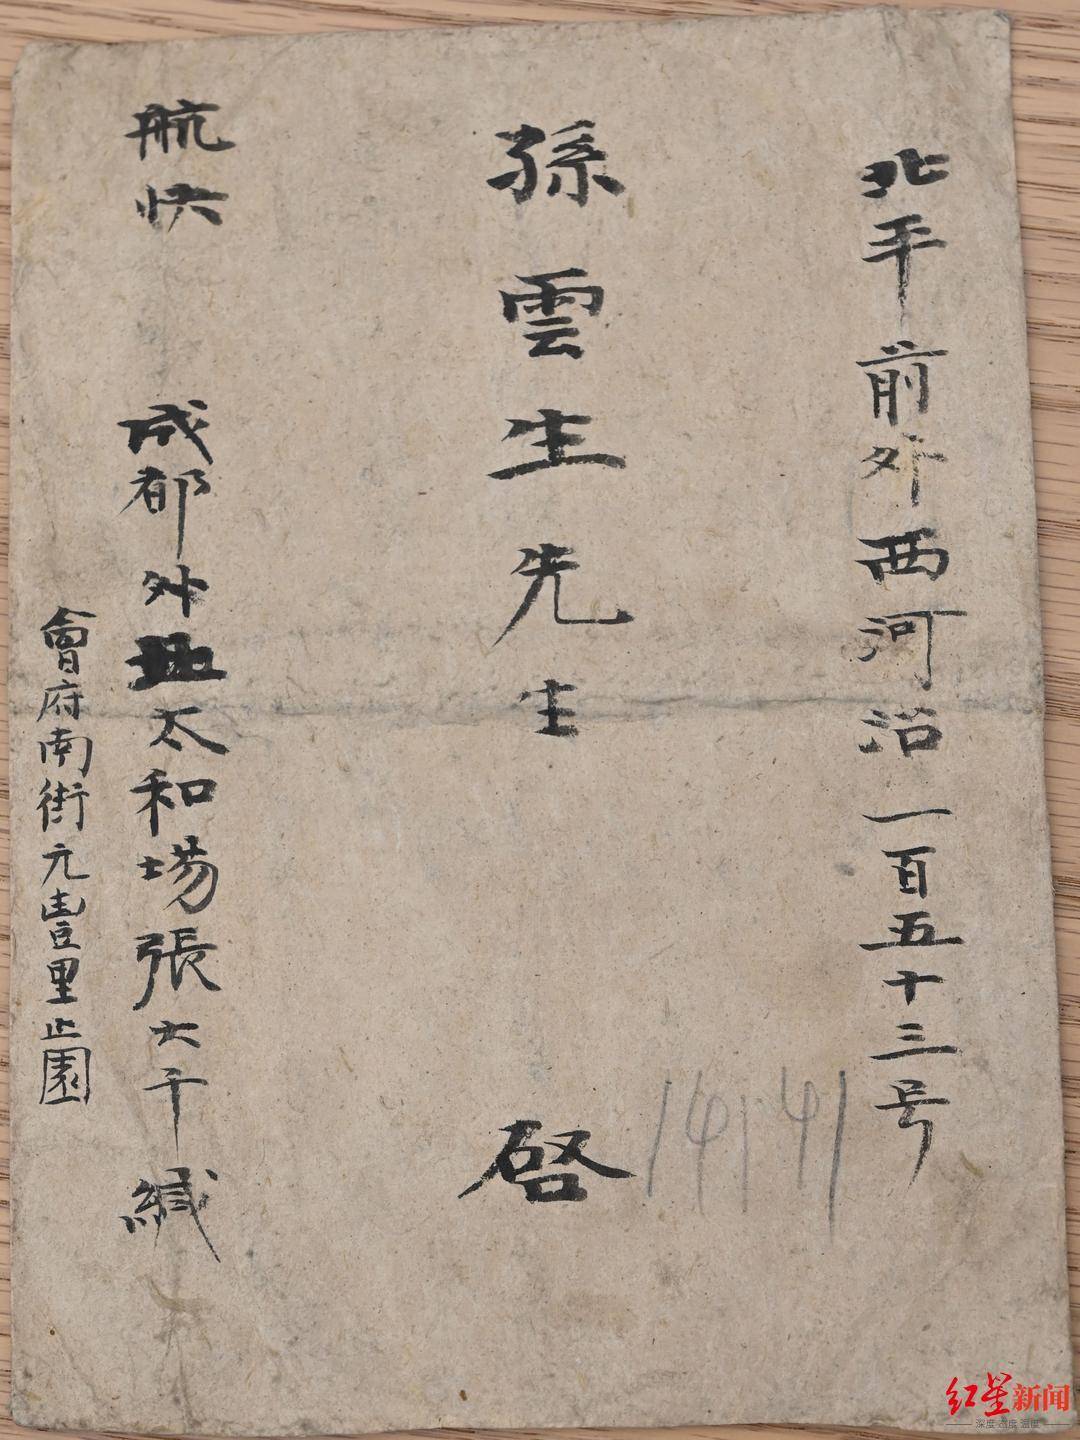 北平前外西河沿一百五十三号
孫雲生先生 啓
航快
成都外太和場張大千緘
會府南街元豐里止園
14141
红星新闻
深度 态度 温度